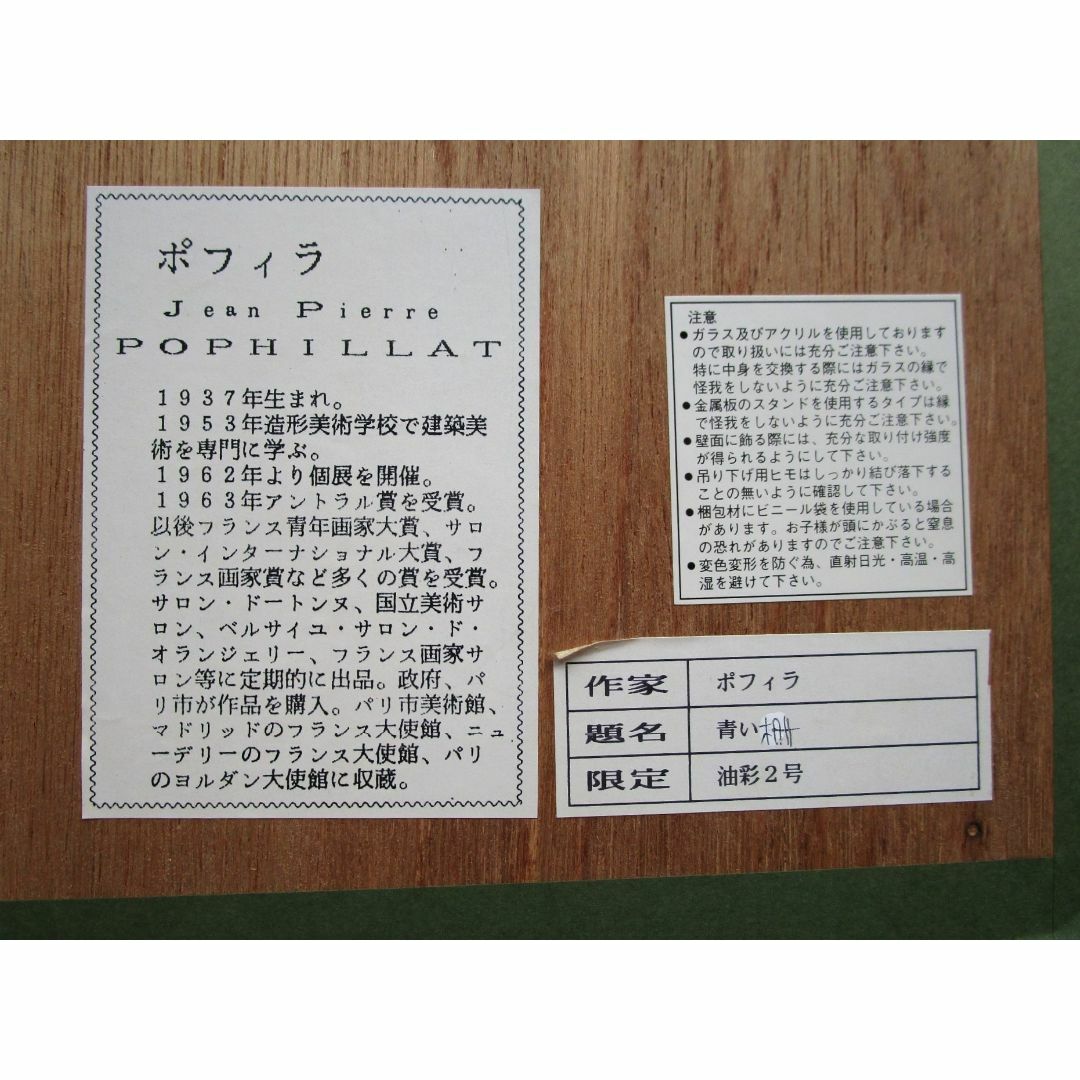 ポフィラ
Jean Pierre
POPHILLAT
1937年生まれ。
1953年造形美術学校で建築美
術を専門に学ぶ。
1962年より個展を開催。
1963年アントラル賞を受賞。
以後フランス青年画家大賞、サロ
ン・インターナショナル大賞、フ
ランス画家賞など多くの賞を受賞。
サロン・ドートンヌ、国立美術サ
ロン、ベルサイユ・サロン・ド・
オランジェリー、フランス画家サ
ロン等に定期的に出品。政府、パ
リ市が作品を購入。パリ市美術館、
マドリッドのフランス大使館、ニュ
ーデリーのフランス大使館、パリ
のヨルダン大使館に収蔵。
注意
●ガラス及びアクリルを使用しております
ので取り扱いには充分ご注意下さい。
特に中身を交換する際にはガラスの縁で
怪我をしないように充分ご注意下さい。
●金属板のスタンドを使用するタイプは縁
で怪我をしないように充分ご注意下さい。
●壁面に飾る際には、充分な取り付け強度
が得られるようにして下さい。
●吊り下げ用ヒモはしっかり結び落下する
ことの無いように確認して下さい。
●梱包材にビニール袋を使用している場合
があります。お子様が頭にかぶると窒息
の恐れがありますのでご注意下さい。
●変色変形を防ぐ為、直射日光・高温・高
湿を避けて下さい。
作家 ポフィラ
題名 青い
限定 油彩2号